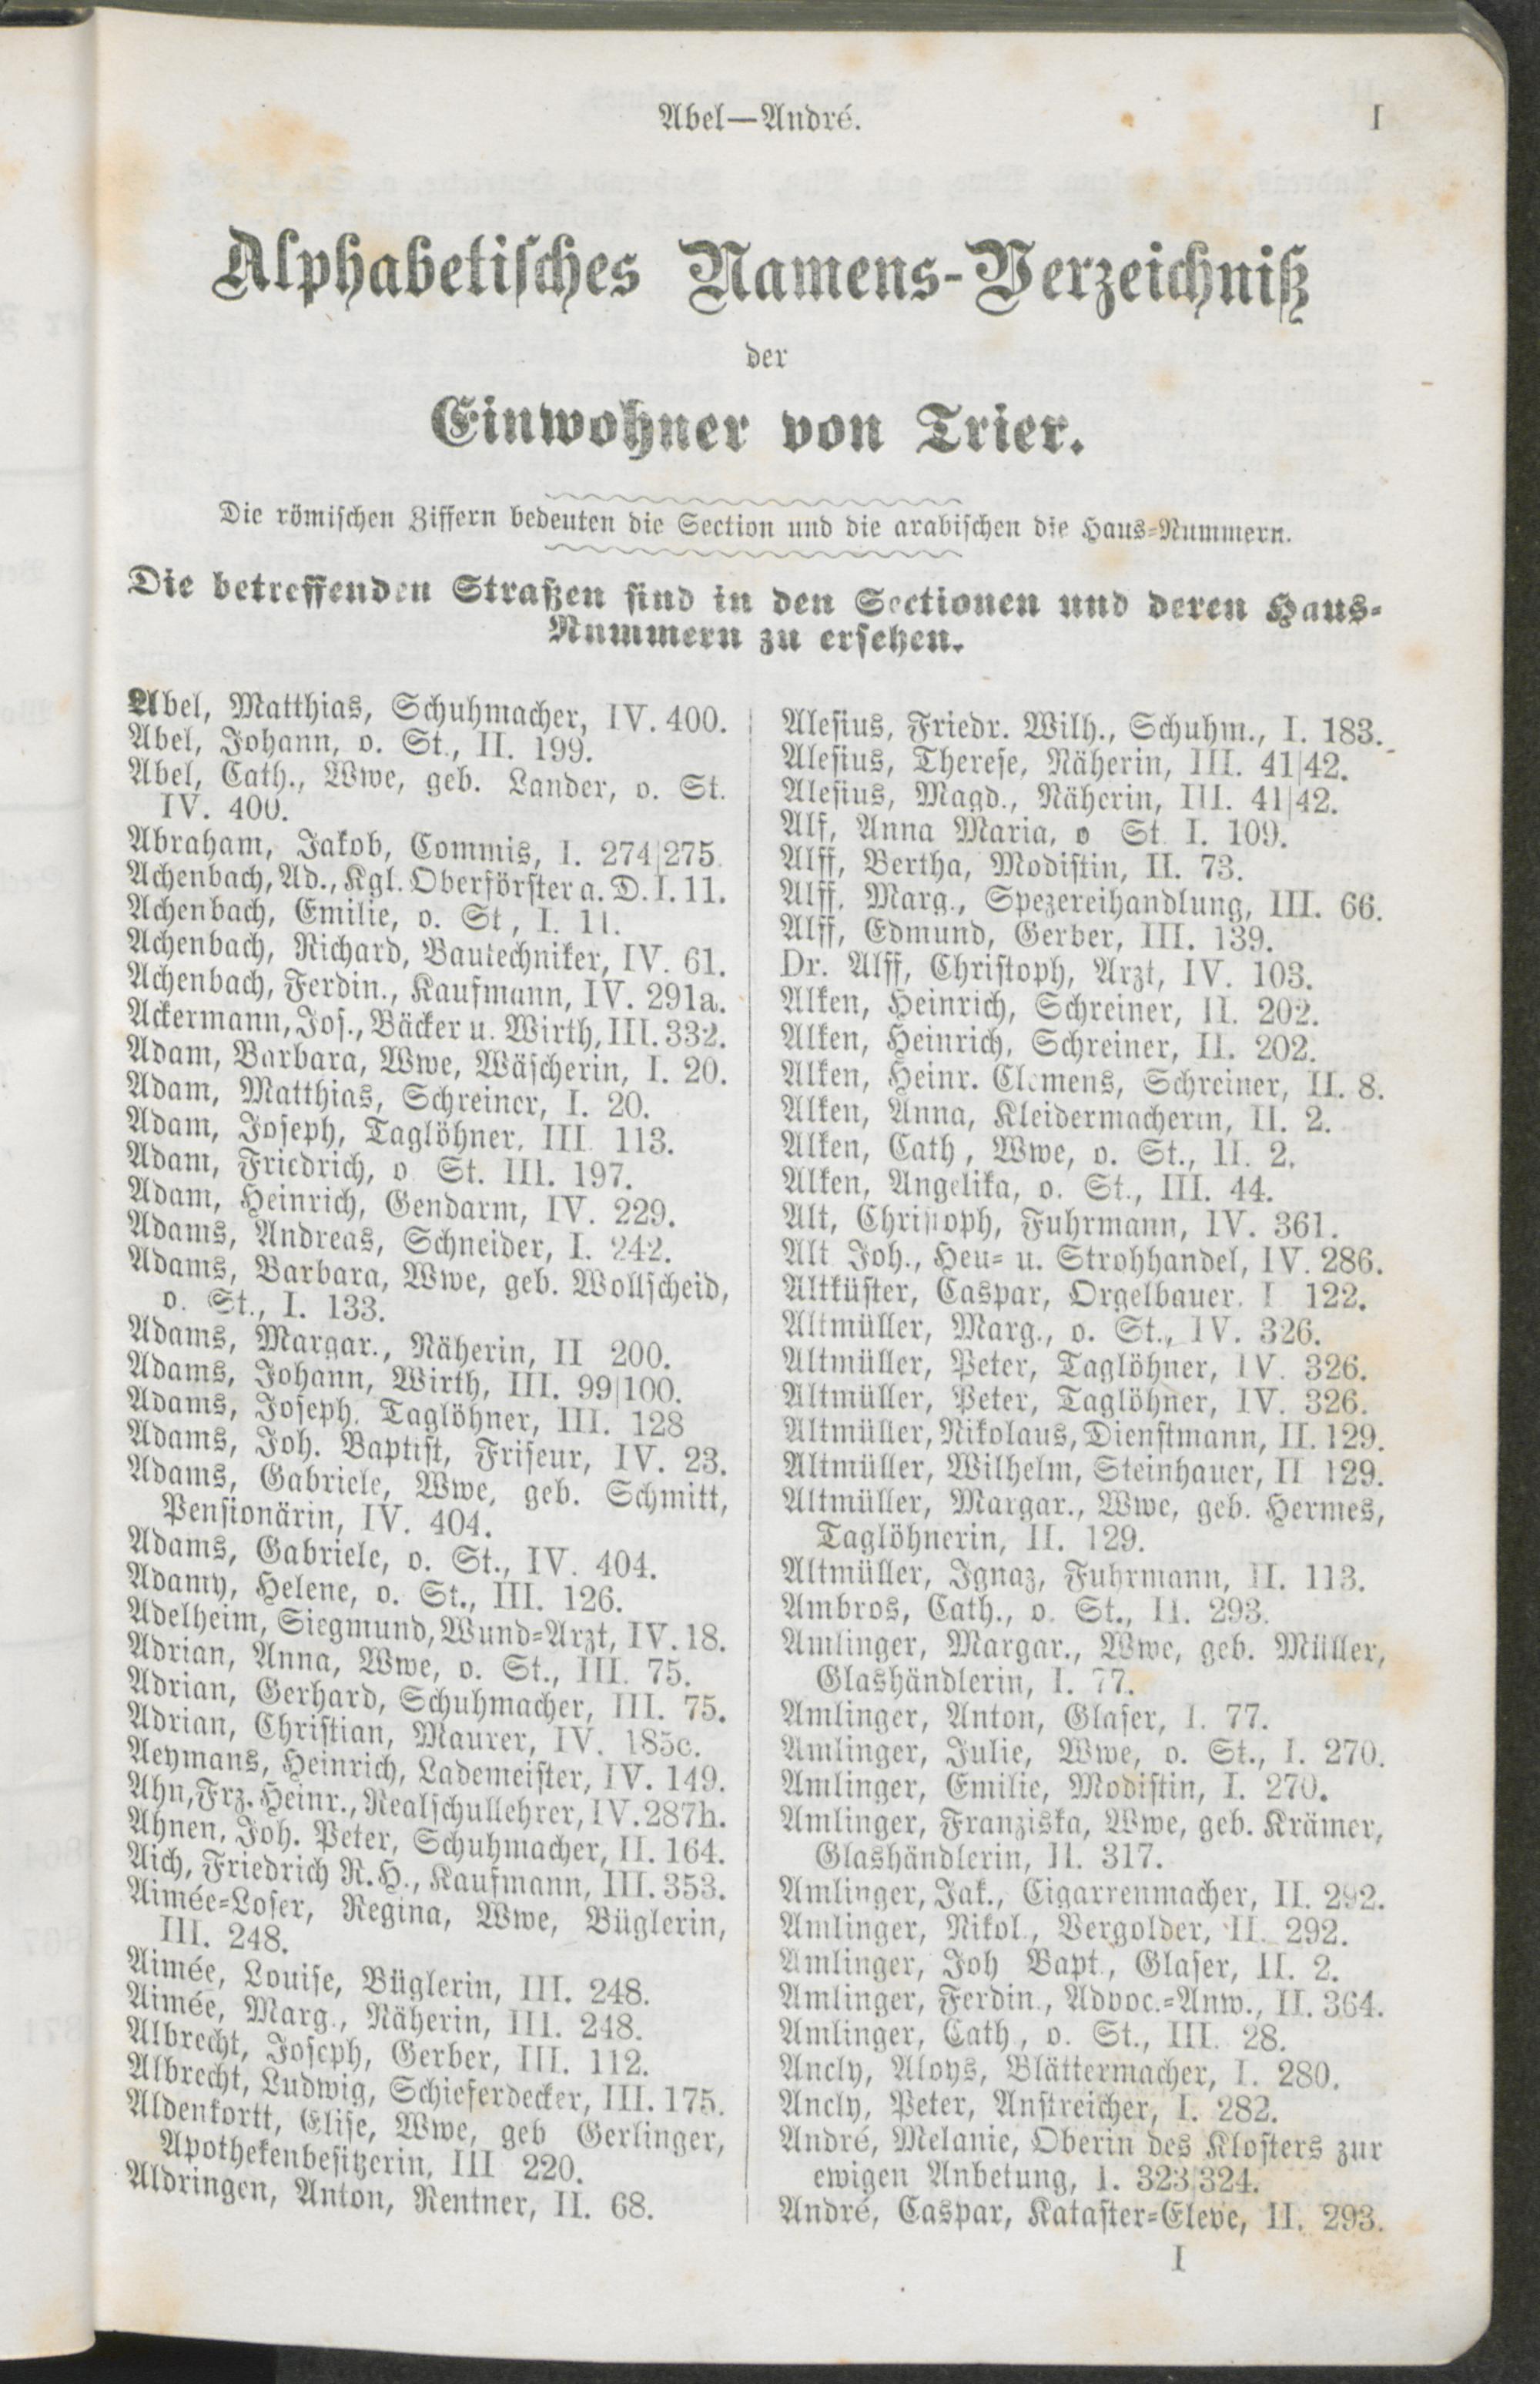 Abel—André.
I
Alphabetisches Namens-Verzeichniß
der
Einwohner von Trier.
Die römischen Ziffern bedeuten die Section und die arabischen die Haus-Nummern.
Die betreffenden Straßen sind in den Sectionen und deren Haus-
Nummern zu ersehen.
Abel, Matthias, Schuhmacher, IV. 400.
Abel, Johann, o. St., II. 199.
Abel, Cath., Wwe, geb. Lander, o. St.
IV. 400.
Abraham, Jakob, Commis, I. 274|275
Achenbach, Ad., Kgl. Oberförster a. D. I. 11.
Achenbach, Emilie, o. St, I. 11.
Achenbach, Richard, Bautechniker, IV. 61.
Achenbach, Ferdin., Kaufmann, IV. 291a.
Ackermann, Jos., Bäcker u. Wirth, III. 332.
Adam, Barbara, Wwe, Wäscherin, I. 20.
Adam, Matthias, Schreiner, I. 20.
Adam, Joseph, Taglöhner, III. 113.
Adam, Friedrich, o St. III. 197.
Adam, Heinrich, Gendarm, IV. 229.
Adams, Andreas, Schneider, I. 242.
Adams, Barbara, Wwe, geb. Wollscheid,
o. St., I. 133.
Adams, Margar., Näherin, II 200.
Adams, Johann, Wirth, III. 99|100.
Adams, Joseph, Taglöhner, III. 128
Adams, Joh. Baptist, Friseur, IV. 23.
Adams, Gabriele, Wwe, geb. Schmitt,
Pensionärin, IV. 404.
Adams, Gabriele, o. St., IV. 404.
Adamy, Helene, o. St., III. 126.
Adelheim, Siegmund, Wund-Arzt, IV. 18.
Adrian, Anna, Wwe, o. St., III. 75.
Adrian, Gerhard, Schuhmacher, III. 75.
Adrian, Christian, Maurer, IV. 185c.
Aeymans, Heinrich, Lademeister, IV. 149.
Ahn, Frz. Heinr., Realschullehrer, IV. 287h.
Ahnen, Joh. Peter, Schuhmacher, II. 164.
Aich, Friedrich R. H., Kaufmann, III. 353.
Aimée-Loser, Regina, Wwe, Büglerin,
III. 248.
Aimée, Louise, Büglerin, III. 248.
Aimée, Marg., Näherin, III. 248.
Albrecht, Joseph, Gerber, III. 112.
Albrecht, Ludwig, Schieferdecker, III. 175.
Aldenkortt, Elise, Wwe, geb Gerlinger,
Apothekenbesitzerin, III 220.
Aldringen, Anton, Rentner, II. 68.
Alesius, Friedr. Wilh., Schuhm., I. 183.
Alesius, Therese, Näherin, III. 41|42.
Alesius, Magd., Näherin, III. 41|42.
Alf, Anna Maria, o St. I. 109.
Alff, Bertha, Modistin, II. 73.
Alff, Marg., Spezereihandlung, III. 66.
Alff, Edmund, Gerber, III. 139.
Dr. Alff, Christoph, Arzt, IV. 103.
Alken, Heinrich, Schreiner, II. 202.
Alken, Heinrich, Schreiner, II. 202.
Alken, Heinr. Clemens, Schreiner, II. 8.
Alken, Anna, Kleidermacherin, II. 2.
Alken, Cath, Wwe, o. St., II. 2.
Alken, Angelika, o. St., III. 44.
Alt, Christoph, Fuhrmann, IV. 361.
Alt Joh., Heu- u. Strohhandel, IV. 286.
Altküster, Caspar, Orgelbauer. I 122.
Altmüller, Marg., o. St., IV. 326.
Altmüller, Peter, Taglöhner, IV. 326.
Altmüller, Peter, Taglöhner, IV. 326.
Altmüller, Nikolaus, Dienstmann, II. 129.
Altmüller, Wilhelm, Steinhauer, II 129.
Altmüller, Margar., Wwe, geb. Hermes,
Taglöhnerin, II. 129.
Altmüller, Ignaz, Fuhrmann, II. 113.
Ambros, Cath., o. St., II. 293.
Amlinger, Margar., Wwe, geb. Müller,
Glashändlerin, I. 77.
Amlinger, Anton, Glaser, I. 77.
Amlinger, Julie, Wwe, o. St., I. 270.
Amlinger, Emilie, Modistin, I. 270.
Amlinger, Franziska, Wwe, geb. Krämer,
Glashändlerin, II. 317.
Amlinger, Jak., Cigarrenmacher, II. 292.
Amlinger, Nikol., Vergolder, II. 292.
Amlinger, Joh Bapt., Glaser, II. 2.
Amlinger, Ferdin., Advoc.-Anw., II. 364.
Amlinger, Cath, o. St., III. 28.
Ancly, Aloys, Blättermacher, I. 280.
Ancly, Peter, Anstreicher, I. 282.
André, Melanie, Oberin des Klosters zur
ewigen Anbetung, I. 323|324.
André, Caspar, Kataster-Eleve, II. 293.
I